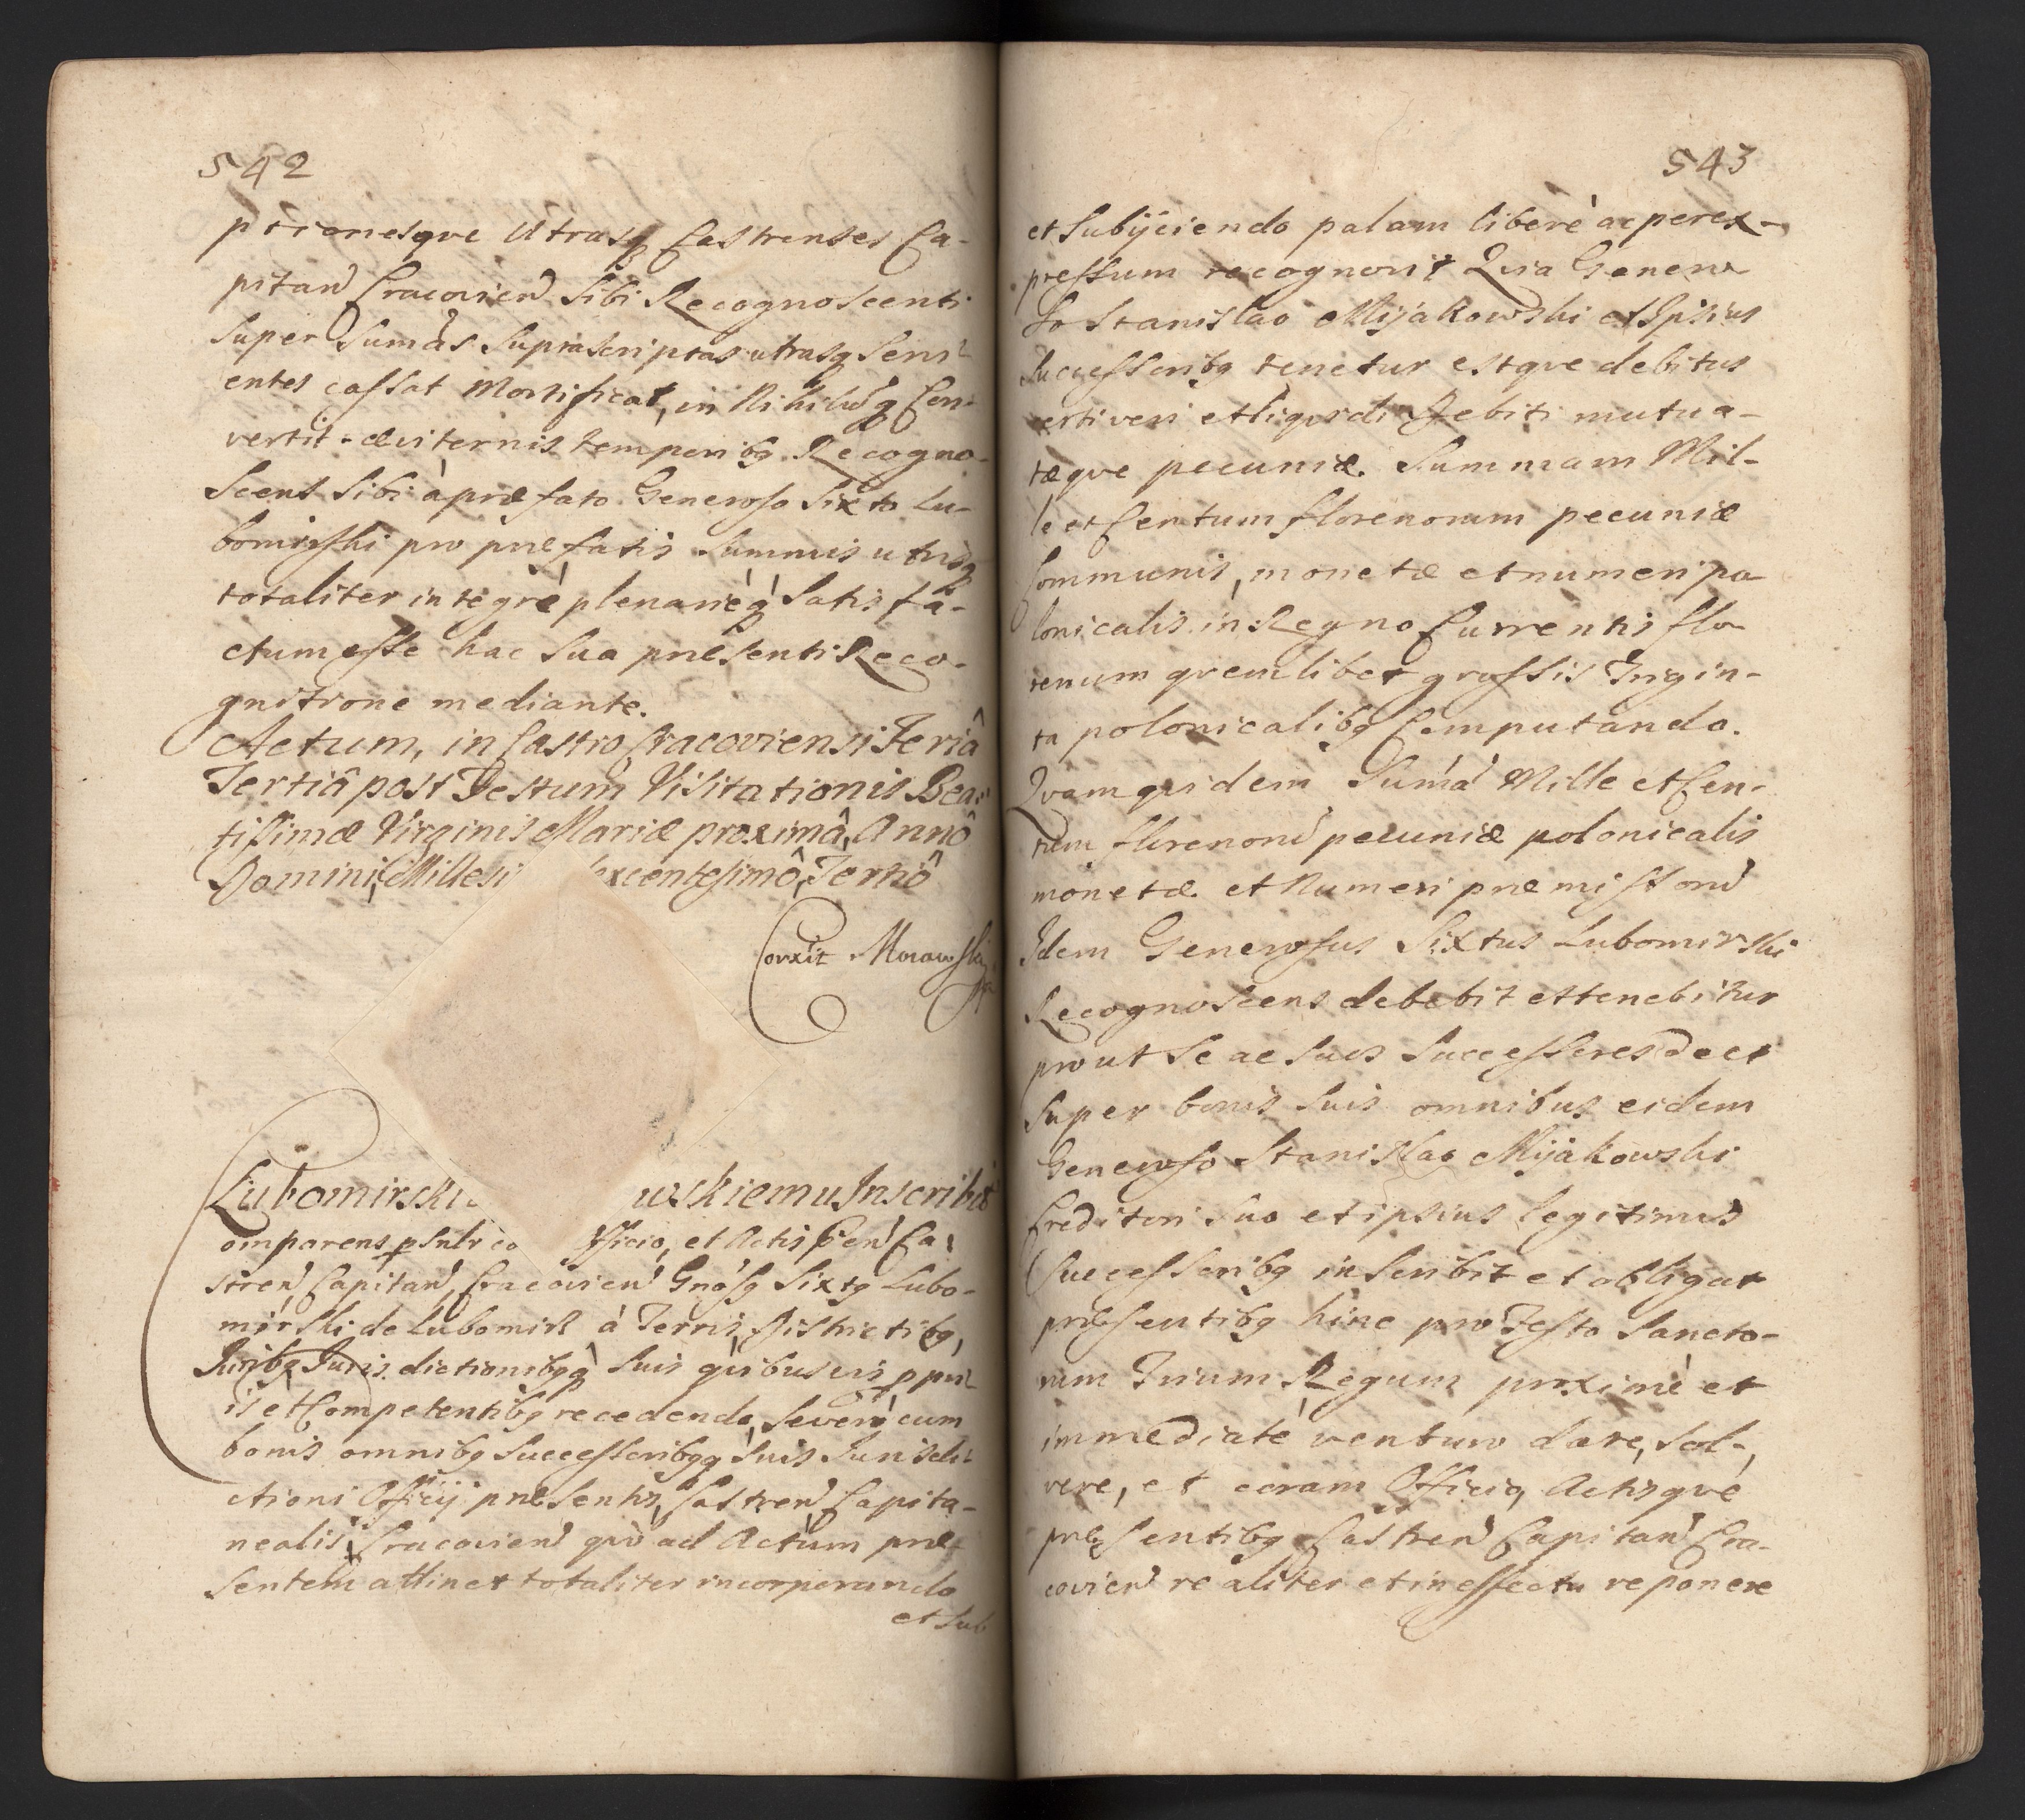 542
ptionesqve Utrasq Castrenses Ca-
pitan Cracovien Sibi Recognoscenti
Super Sumas Suprascriptas utrasq Servi-
entes cassat Mortificat, in Nihilumq Con-
vertit aeviternis temporibq Recogno-
scens Sibi à præfato Generoso Sixto Lu-
bomirski pro præfatis Summis utrisq
totaliter integrè plenarièq Satisfa-
ctum esse hac Sua præsenti Reco-
gnitione mediante.
Actum, in Castro Cracoviensi Feriâ
Tertiâ post Festum Visitationis Bea-
tissimæ Virginis Mariæ proximâ, Annô
Domini Millesi excentesimô, Tertiô
Corxit Morawski
Lubomirski wskiemu Inscribit
omparens psnlr co fficio, et Actis pñ Ca-
stren Capitan, Cracovien Gnosq Sixtq Lubo-
mirski de Lubomirz à Terris, Districtibq,
Juribq Jurisdictionibqq Suis qvibusvis ppri-
is et Competentibq recedendo, Severò cum
bonis omnibq Successoribqq Suis Jurisdi-
ctioni Officij præsentis, Castren Capita-
nealis Cracovien qvò ad Actum præ-
sentem attinet totaliter incorporando
et Sub
543
et Subijciendo palam liberè ac per ex-
pressum recognovit Qvia Genero-
so Stanislao Mijakowski et Ipsius
Successoribq tenetur estqve debitus
certi veri et liqvidi Debiti mutua-
tæqve pecuniæ. Summam Mil-
le et Centum florenorum pecuniæ
Communis, monetæ et numeri po-
lonicalis in Regno Currentis flo-
renum qvemlibet grossis Trigin-
ta polonicalibq Computando.
Qvamqvidem Sumã Mille et Cen-
tum florenorũ pecuniæ polonicalis
monetæ et Numeri præmissorũ
Idem Generosus Sixtus Lubomirski
Recognoscens debebit et tenebitur
prout Se ac Suos Successores Doct
Super bonis Suis omnibus eidem
Generoso Stanislao Mijakowski
Creditori Suo et ipsius legitimis
Successoribq inscribit et obligat
præsentibq hinc pro Festo Sancto-
rum Trium Regum proximè et
immediatè venturo dare, Sol-
vere, et coram Officio, Actisqve
præsentibq Castren Capitan Cra-
covien realiter et in effectu reponere